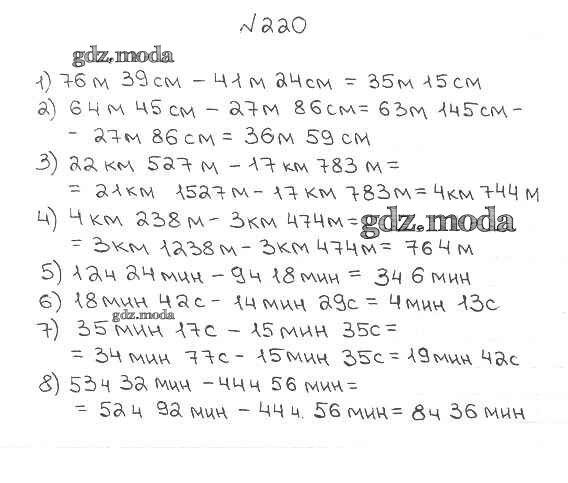 №220
gdz.moda
1) 76 м 39 см – 41 м 24 см = 35 м 15 см
2) 64 м 45 см – 27 м 86 см = 63 м 145 см –
– 27 м 86 см = 36 м 59 см
3) 22 км 527 м – 17 км 783 м =
= 21 км 1527 м – 17 км 783 м = 4 км 744 м
4) 4 км 238 м – 3 км 474 м =
gdz.moda
= 3 км 1238 м – 3 км 474 м = 764 м
5) 12 ч 24 мин – 9 ч 18 мин = 3 ч 6 мин
6) 18 мин 42 с – 14 мин 29 с = 4 мин 13 с
gdz.moda
7) 35 мин 17 с – 15 мин 35 с =
= 34 мин 77 с – 15 мин 35 с = 19 мин 42 с
8) 53 ч 32 мин – 44 ч 56 мин =
= 52 ч 92 мин – 44 ч. 56 мин = 8 ч 36 мин